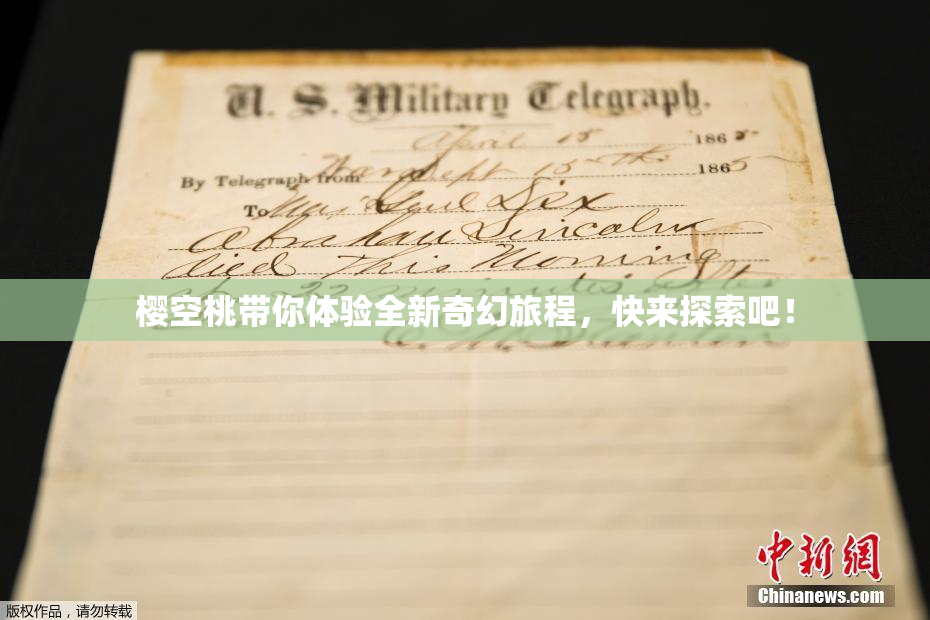 U. S. Military Telegraph.
April 15 1865
By Telegraph from War Dept 15th 1865
To Maj Genl Dix
Abraham Lincoln
died This Morning
22 minutes after
樱空桃带你体验全新奇幻旅程，快来探索吧！
中新網
Chinanews.com
版权作品，请勿转载